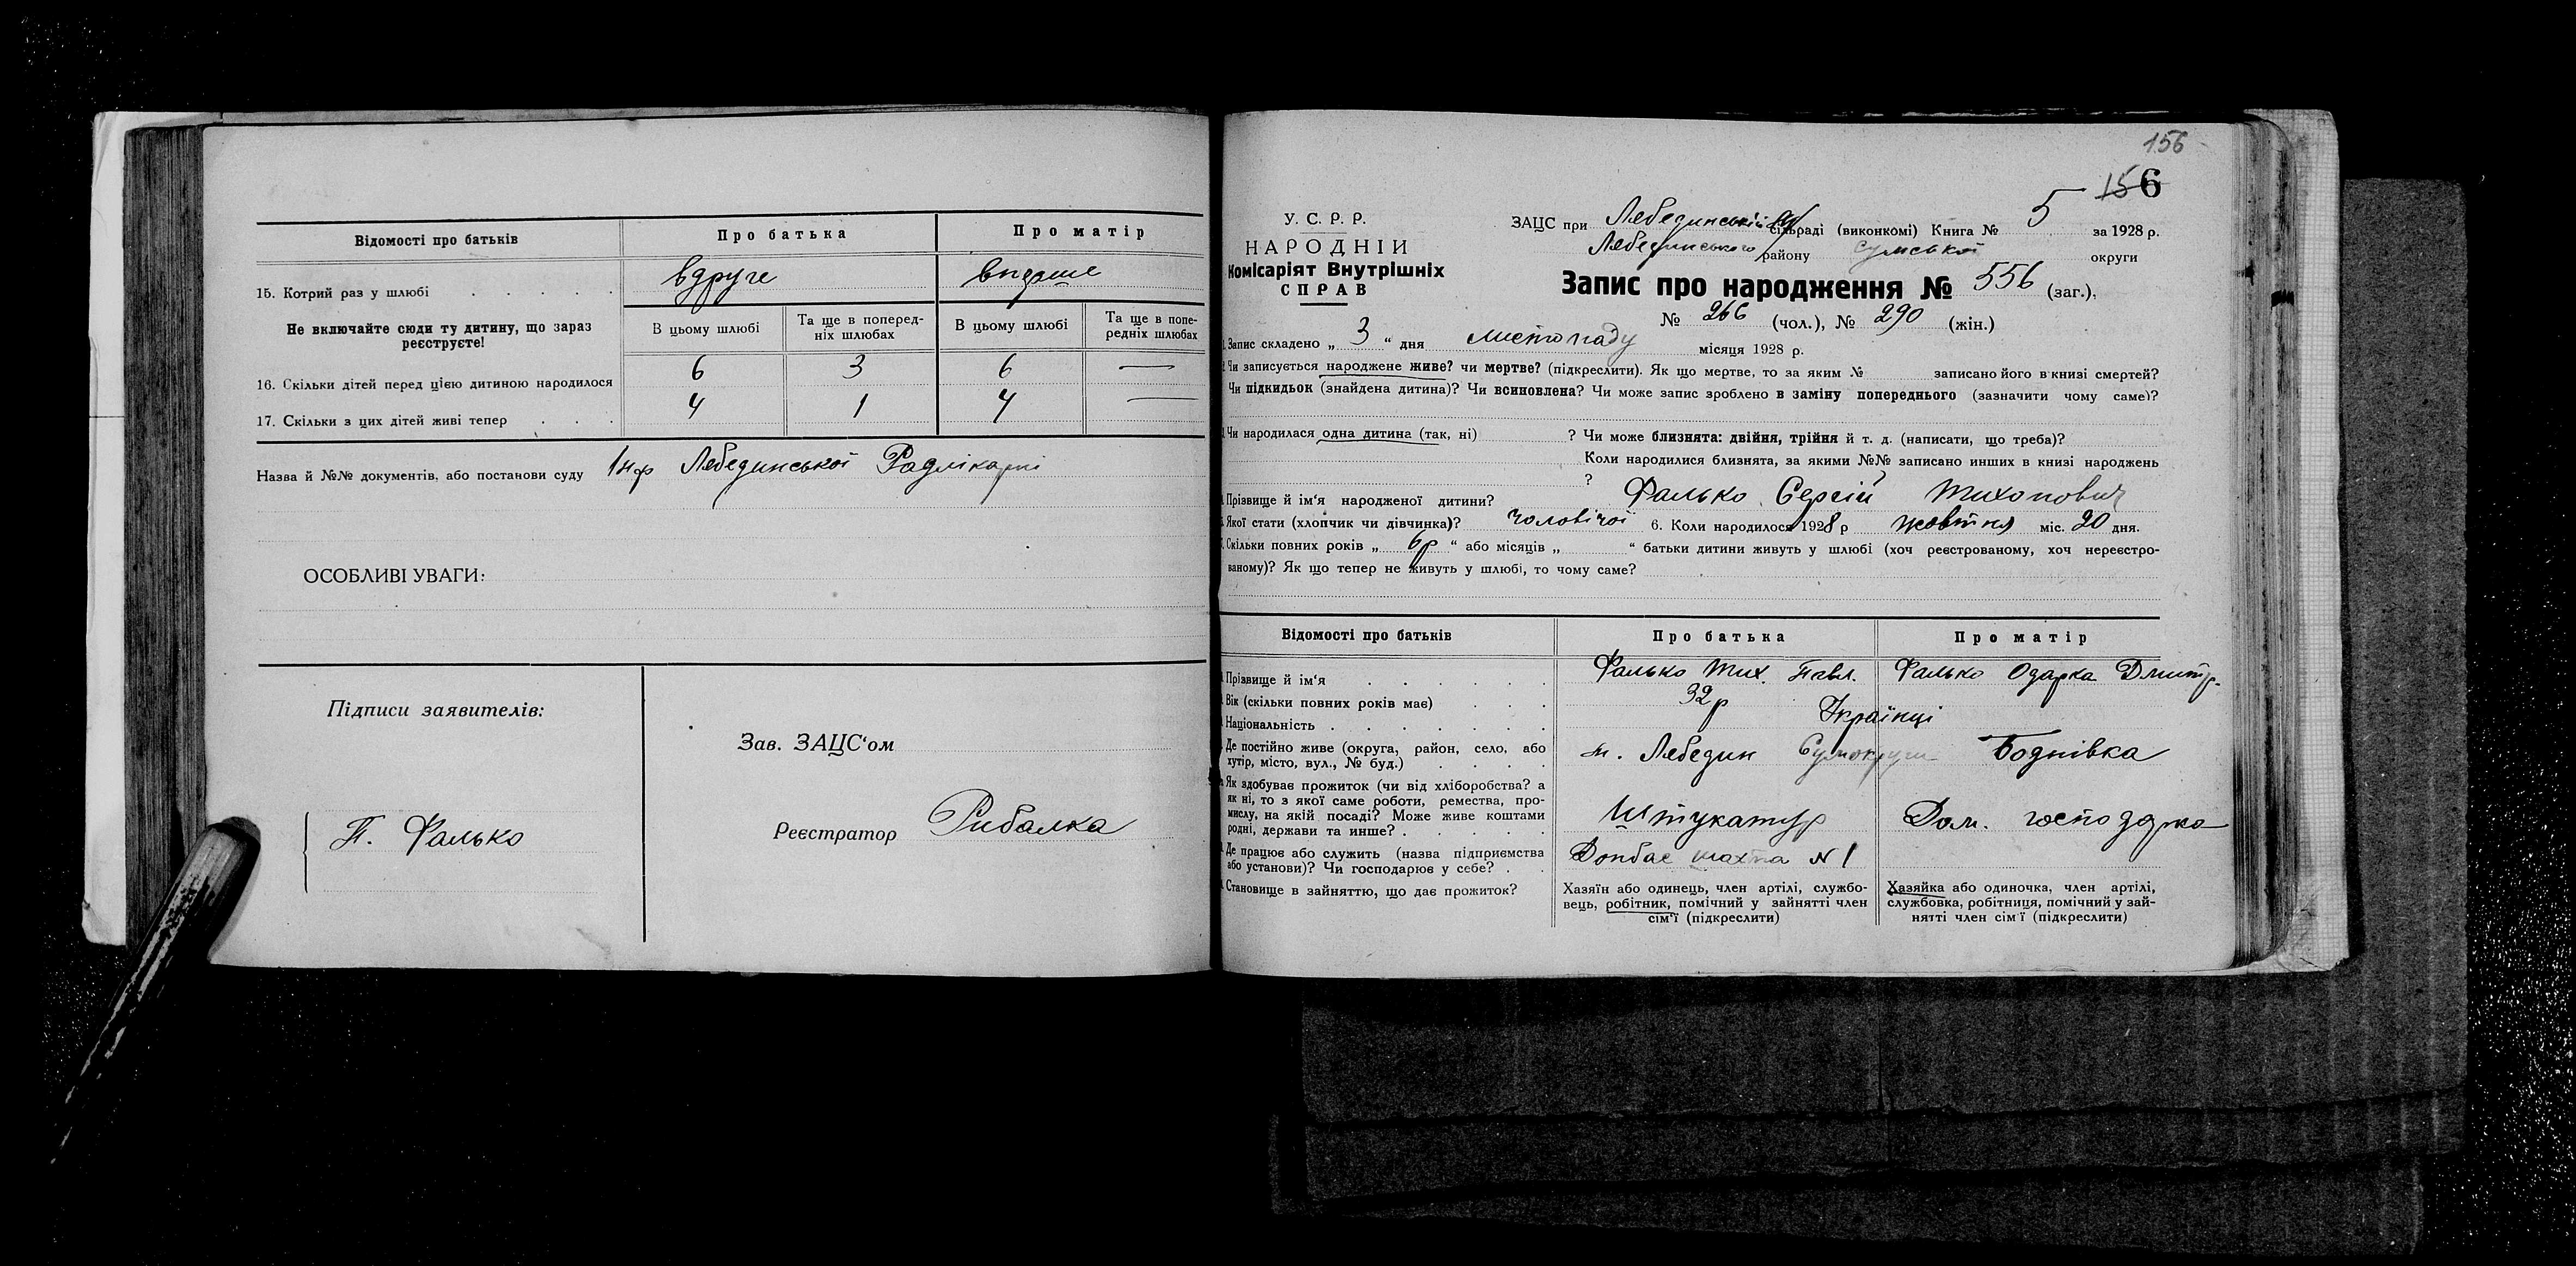 Відомості про батьків
Про батька
Про матір
15. Котрий раз у шлюбі . . . . .
вдруге
вперше
Не включайте сюди ту дитину, що зараз реєструєте!
В цьому шлюбі
Та ще в поперед-
ніх шлюбах
В цьому шлюбі
Та ще в попе-
редніх шлюбах
16. Скільки дітей перед цією дитиною народилося
6
3
6
—
17. Скільки з цих дітей живі тепер . . .
4
1
4
—
Назва й №№ документів, або постанови суду Лебединської Радлікарні
ОСОБЛИВІ УВАГИ:
Підписи заявителів:
Т. Фалько
Зав. ЗАЦС‘ом
Реєстратор Рибалка
156
156
У. С. Р. Р.
НАРОДНІЙ
Комісаріят Внутрішніх
СПРАВ
ЗАЦС при Лебединській сільраді (виконкомі) Книга № 5 за 1928 р.
Лебединського району Сумської округи
Запис про народження № 556 (заг.),
№ 266 (чол.), № 290 (жін.)
Запис складено „ 3 “ дня листопаду місяця 1928 р.
Чи записується народжене живе? чи мертве? (підкреслити). Як що мертве, то за яким № записано його в книзі смертей?
Чи підкидьок (знайдена дитина)? Чи всиновлена? Чи може запис зроблено в заміну попереднього (зазначити чому саме)?
Чи народилася одна дитина (так, ні) ? Чи може близнята: двійня, трійня й т. д. (написати, що треба)?
Коли народилися близнята, за якими №№ записано инших в книзі народжень
?
Прізвище й ім‘я народженої дитини? Фалько Сергій Тихонович
Якої стати (хлопчик чи дівчинка)? чоловічої 6. Коли народилося 1928 р жовтня міс. 20 дня.
Скільки повних років „ 6р “ або місяців „ “ батьки дитини живуть у шлюбі (хоч реєстрованому, хоч нереєстро-
ваному)? Як що тепер не живуть у шлюбі, то чому саме?
Відомості про батьків
Про батька
Про матір
Прізвище й ім‘я . . . . . .
Фалько Тих. Павл.
Фалько Одарка Дмитр.
Вік (скільки повних років має) . . .
32р
Національність . . . . . . .
Українці
Де постійно живе (округа, район, село, або
хутір, місто, вул., № буд.) . . . .
м. Лебедин Сумокруги
Боднівка
Як здобуває прожиток (чи від хліборобства? а
як ні, то з якої саме роботи, ремества, про-
мислу, на якій посаді? Може живе коштами
родні, держави та инше? . . . . .
Штукатур
Дом. господарка
Де працює або служить (назва підприємства
або установи)? Чи господарює у себе? . .
Донбас шахта № 1
Становище в зайняттю, що дає прожиток?
Хазяїн або одинець, член артілі, службо-
вець, робітник, помічний у зайнятті член
сім‘ї (підкреслити)
Хазяйка або одиночка, член артілі,
службовка, робітниця, помічний у зай-
нятті член сім‘ї (підкреслити)